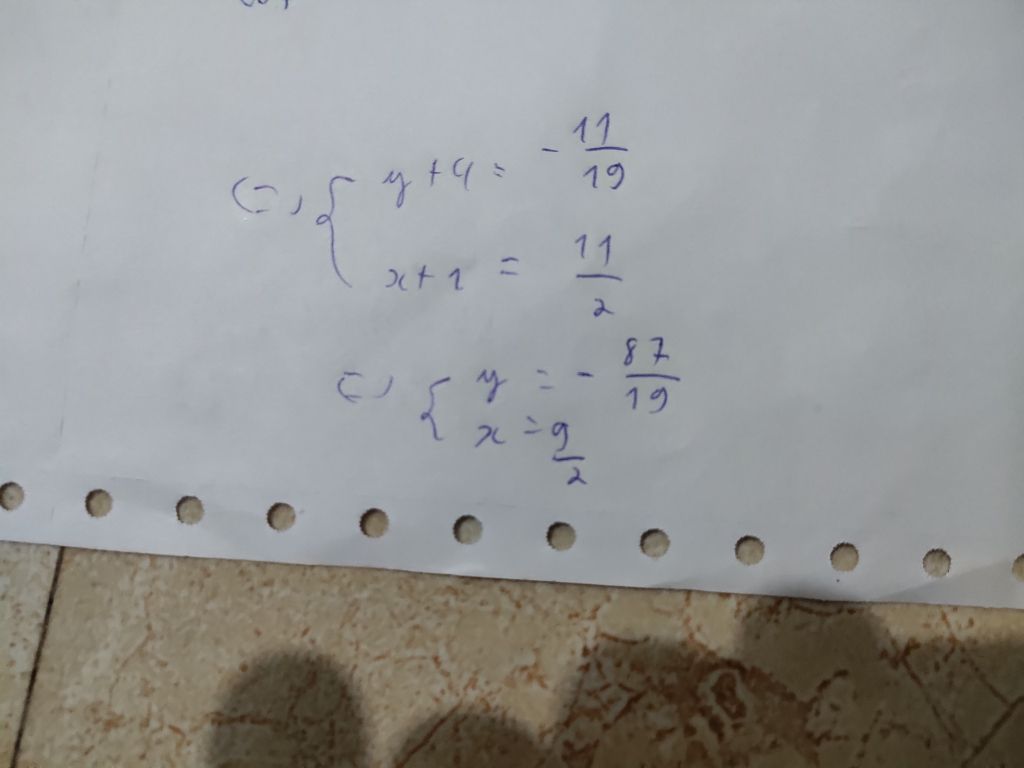 (=) { y + 4 = - 11/19
x + 1 = 11/2
(=) { y = - 87/19
x = 9/2